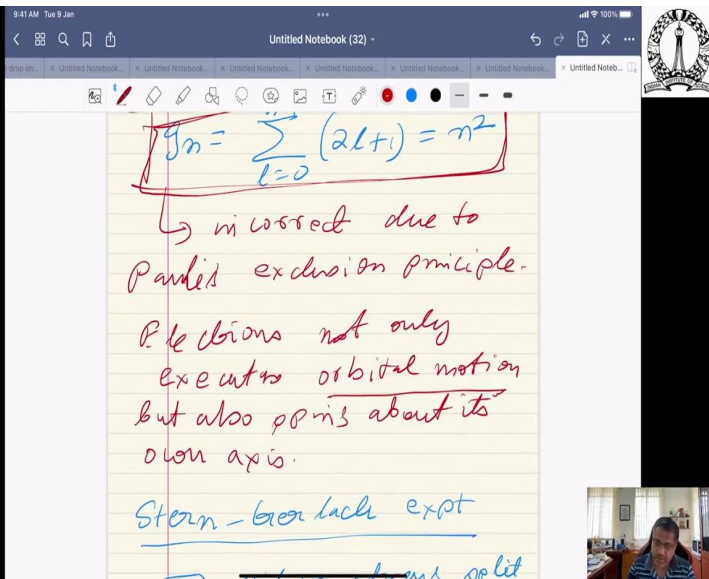 9:41 AM Tue 9 Jan
100%
Untitled Notebook (32)
drop im...
× Untitled Notebook...
× Untitled Notebook...
× Untitled Notebook...
× Untitled Notebook...
× Untitled Notebook...
× Untitled Notebook...
× Untitled Noteb...
gn = Σ (2l+1) = n²
l=0
↳ incorrect due to
Paulis exclusion principle.
Electrons not only
executes orbital motion
but also spins about its
own axis.
Stern-Gerlach expt
split